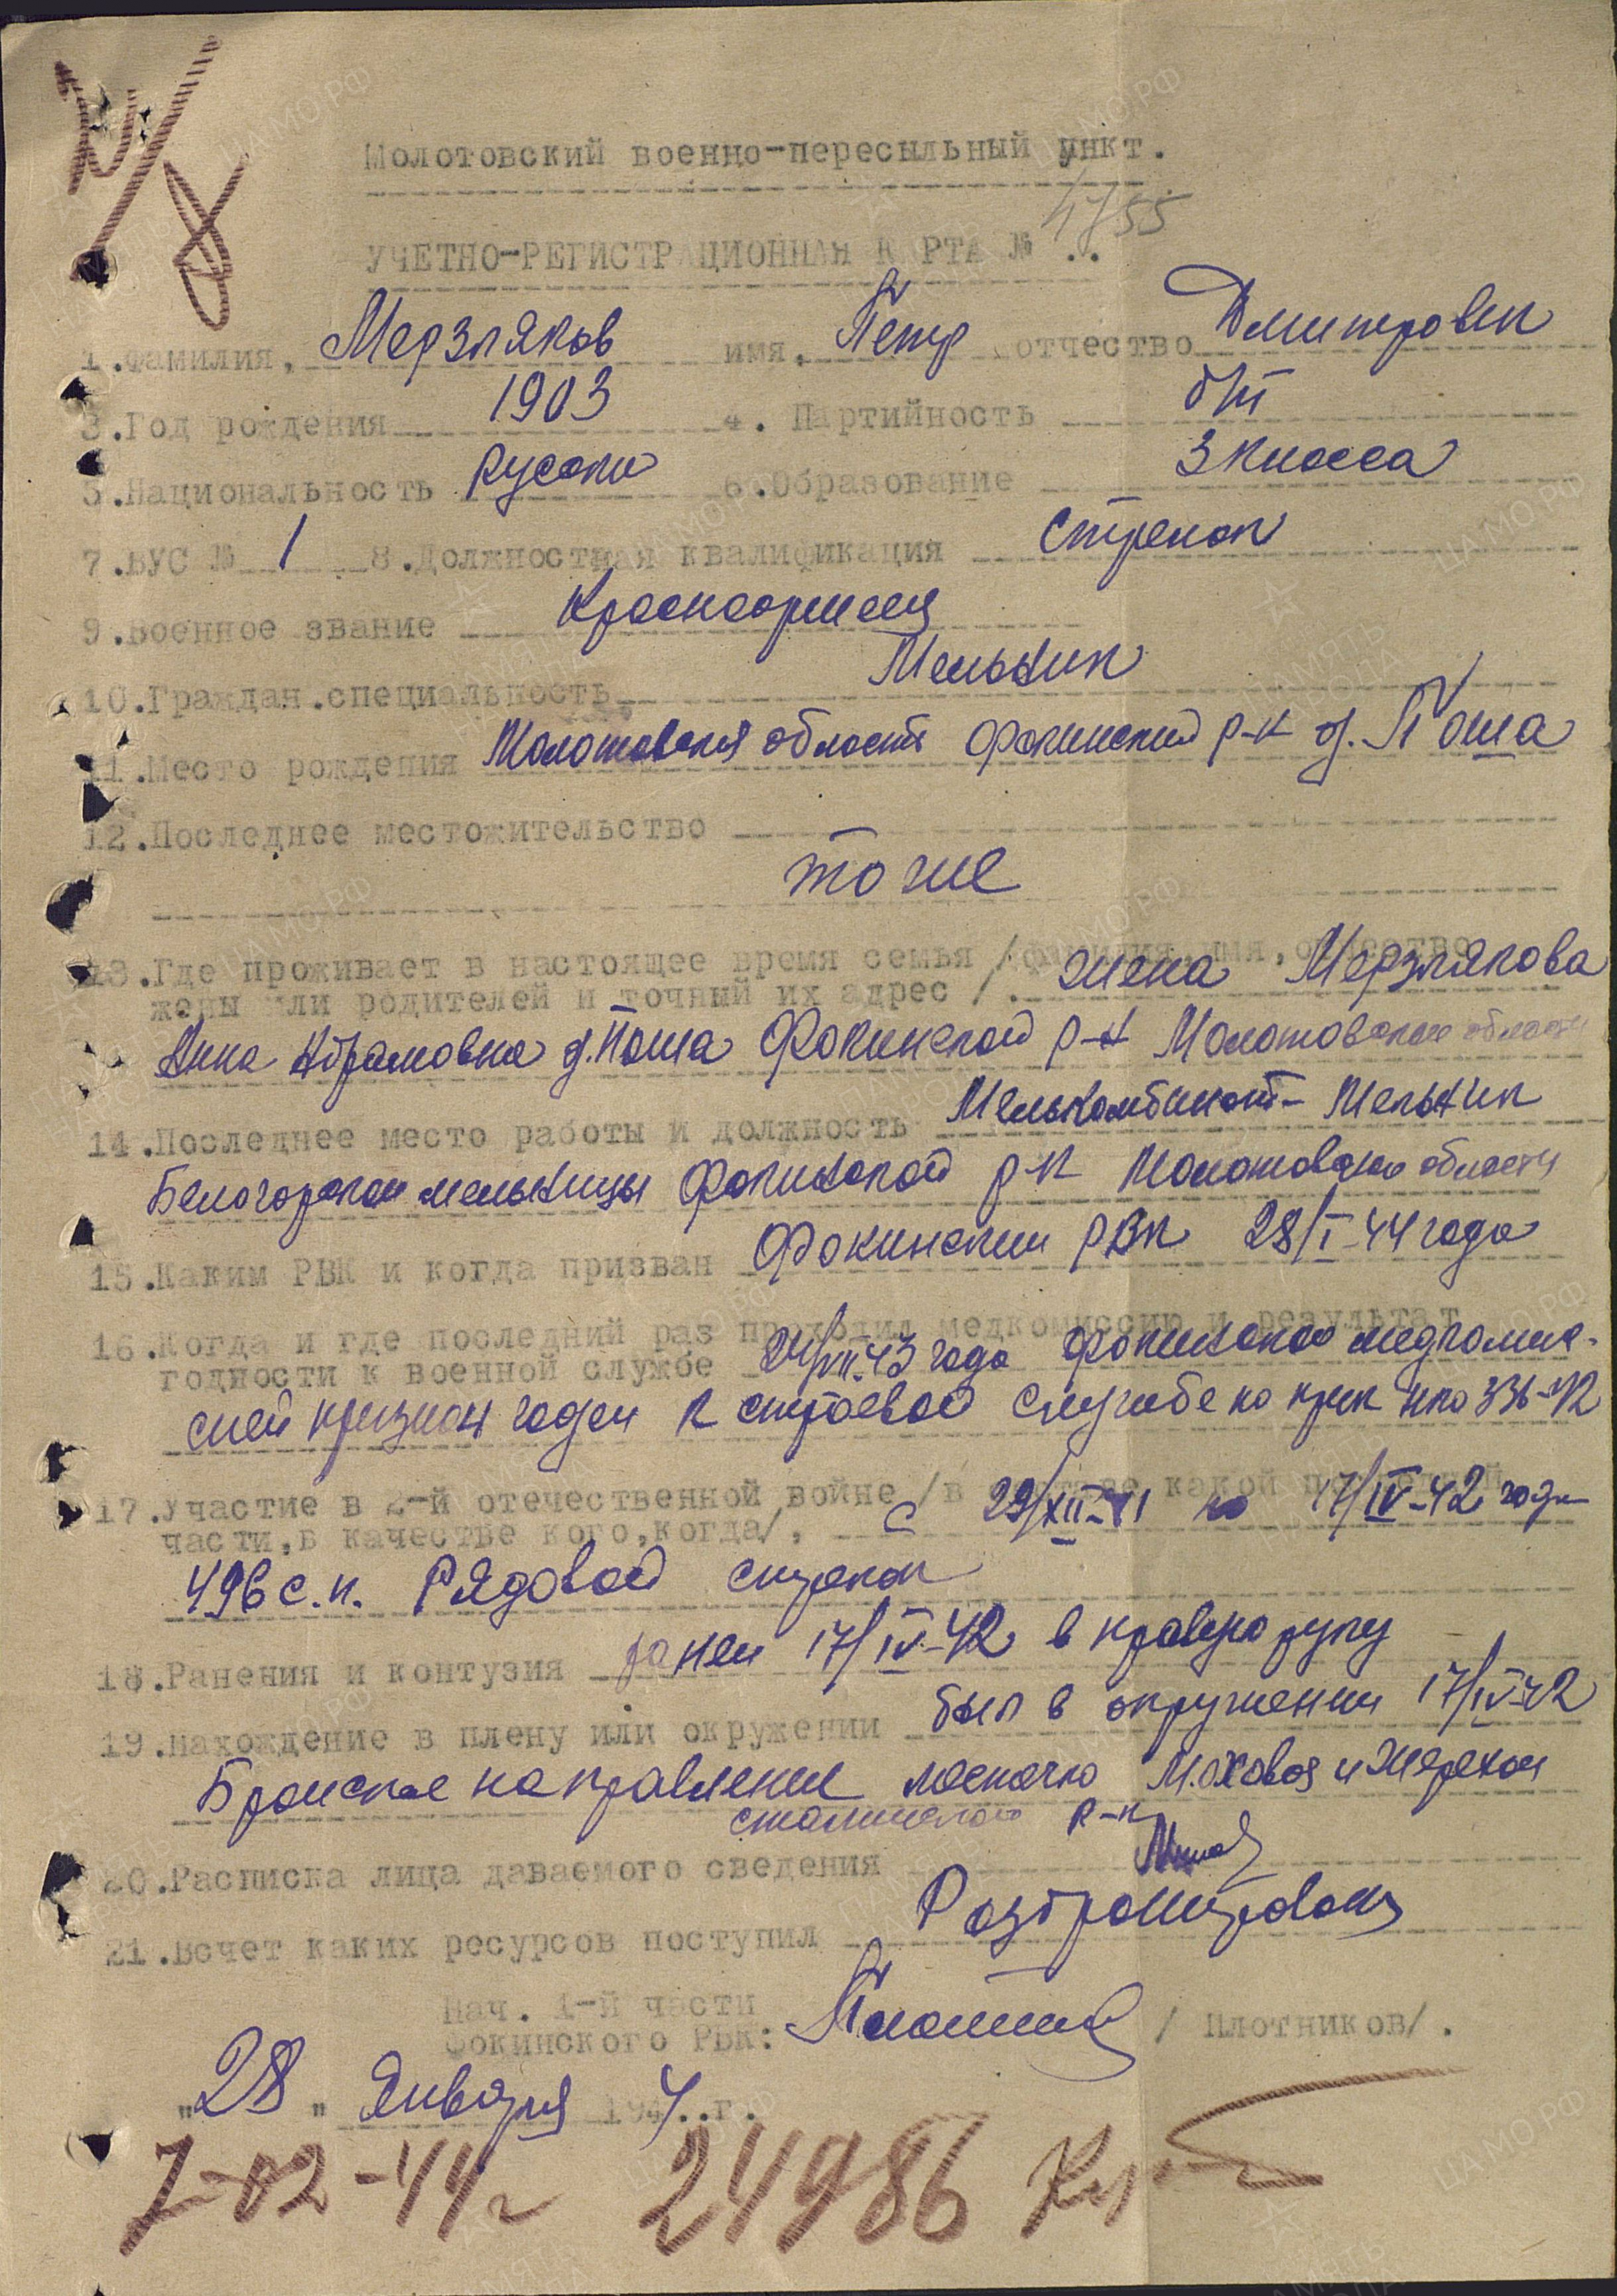 Молотовский военно-пересыльный пункт.
УЧЕТНО-РЕГИСТРАЦИОННАЯ КАРТА № 4755
1.Фамилия, Мерзляков имя, Петр отчество Дмитрович
3.Год рождения 1903 4. Партийность б/п
5.Национальность Руский 6.Образование 3 класса
7.ВУС № 1 8.Должностная квалификация стрелок
9.Военное звание Красноармеец
10.Граждан.специальность Мельник
11.Место рождения Молотовская область Фокинский р-н д. Поша
12.Последнее местожительство
тоже
13.Где проживает в настоящее время семья /фамилия, имя, отчество
жены или родителей и точный их адрес/. жена Мерзлякова
Анна Абрамовна д. Поша Фокинской р-н Молотовская область
14.Последнее место работы и должность Мелькомбинат- Мельник
Белогорской мельницы Фокинской р-н Молотовской области
15.Каким РВК и когда призван Фокинским РВК 28/I-44 года
16.Когда и где последний раз проходил медкомиссию и результат
годности к военной службе 24/VII-43 года Фокинской медкомис-
сией признан годен к строевой службе по прик нко 336-42
17.Участие в 2-й отечественной войне /в составе какой последней
части,в качестве кого,когда/, с 29/XII-41 по 17/IV-42 года
496 с.п. Рядовой стрелок
18.Ранения и контузия ранен 17/IV-42 в правую руку
19.Нахождение в плену или окружении был в окружении 17/IV-42
Бранское направление Моховая и
р-н
20.Расписка лица даваемого сведения
21.Всчет каких ресурсов поступил Разбронирован
Нач. 1-й части
Фокинского РВК: /Плотников/.
"28" Января 1944.г.
7-02-44г 24986